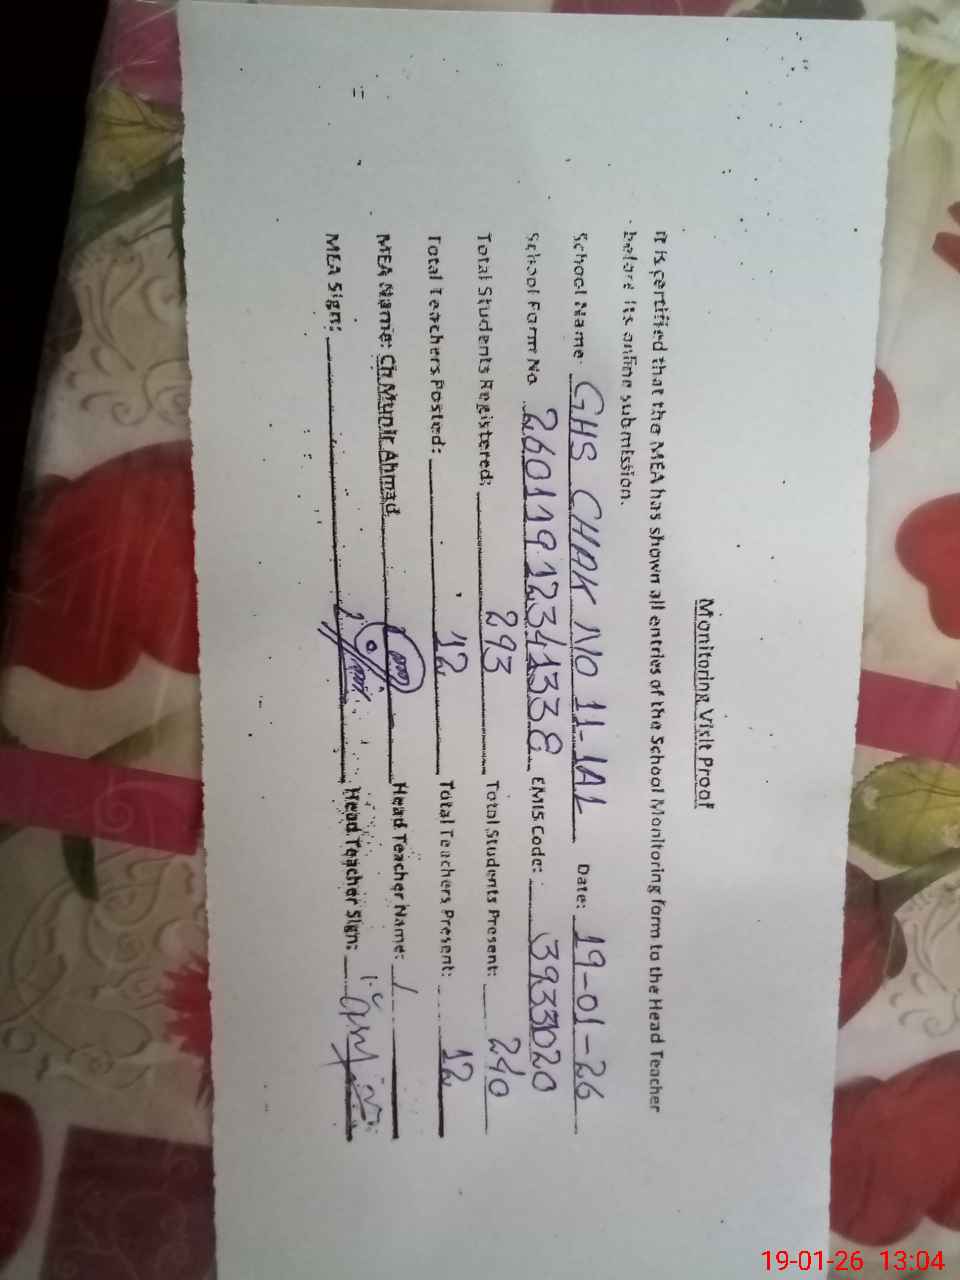 Monitoring Visit Proof
It is certified that the MEA has shown all entries of the School Monitoring form to the Head Teacher
before its online submission.
School Name: GHS CHAK NO 11-1AL Date: 19-01-26
School Form No. 260119123413 EMIS Code:
Total Students Registered: 293 Total Students Present: 240
Total Teachers Posted: 12 Total Teachers Present: 12
MEA Name: Ch Munir Ahmad Head Teacher Name:
MEA Sign: Head Teacher Sign:
19-01-26 13:04